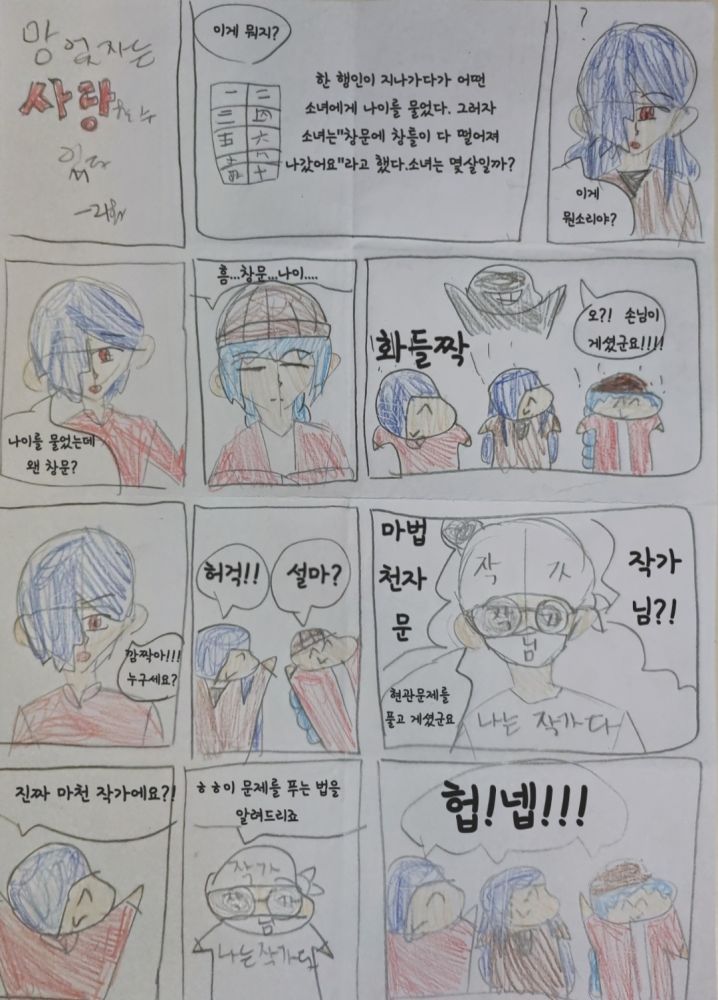 망 없자는
사랑
있다
이게 뭐지?
一 二
三 四
五 六
十
한 행인이 지나가다가 어떤
소녀에게 나이를 물었다. 그러자
소녀는"창문에 창틀이 다 떨어져
나갔어요"라고 했다.소녀는 몇살일까?
?
이게
뭔소리야?
나이를 물었는데
왠 창문?
흠...창문...나이....
화들짝
오?! 손님이
계셨군요!!!!
깜짝아!!!
누구세요?
허걱!!
설마?
마법
천자
문
작가
님?!
작 가
작 가
님
현관문제를
풀고 계셨군요
나는 작가다
진짜 마천 작가에요?!
ㅎㅎ이 문제를 푸는 법을
알려드리죠
작가
님
나는작가다
헙!넵!!!